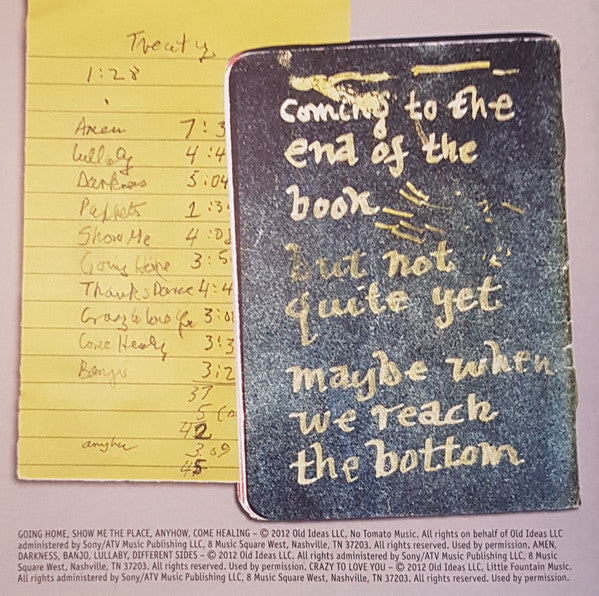 Treaty
1:28
Amen 7:3
Lullaby 4:4
Darkness 5:04
Puppets 1:3
Show Me 4:08
Going Home 3:5
Thanks Dance 4:4
Crazy to love you 3:0
Come Healing 3:3
Banjo 3:2
37
5
42
anyhow 3:09
45
coming to the
end of the
book
but not
quite yet
maybe when
we reach
the bottom
GOING HOME, SHOW ME THE PLACE, ANYHOW, COME HEALING – © 2012 Old Ideas LLC, No Tomato Music. All rights on behalf of Old Ideas LLC
administered by Sony/ATV Music Publishing LLC, 8 Music Square West, Nashville, TN 37203. All rights reserved. Used by permission. AMEN,
DARKNESS, BANJO, LULLABY, DIFFERENT SIDES – © 2012 Old Ideas LLC. All rights administered by Sony/ATV Music Publishing LLC, 8 Music
Square West, Nashville, TN 37203. All rights reserved. Used by permission. CRAZY TO LOVE YOU – © 2012 Old Ideas LLC, Little Fountain Music.
All rights administered by Sony/ATV Music Publishing LLC, 8 Music Square West, Nashville, TN 37203. All rights reserved. Used by permission.